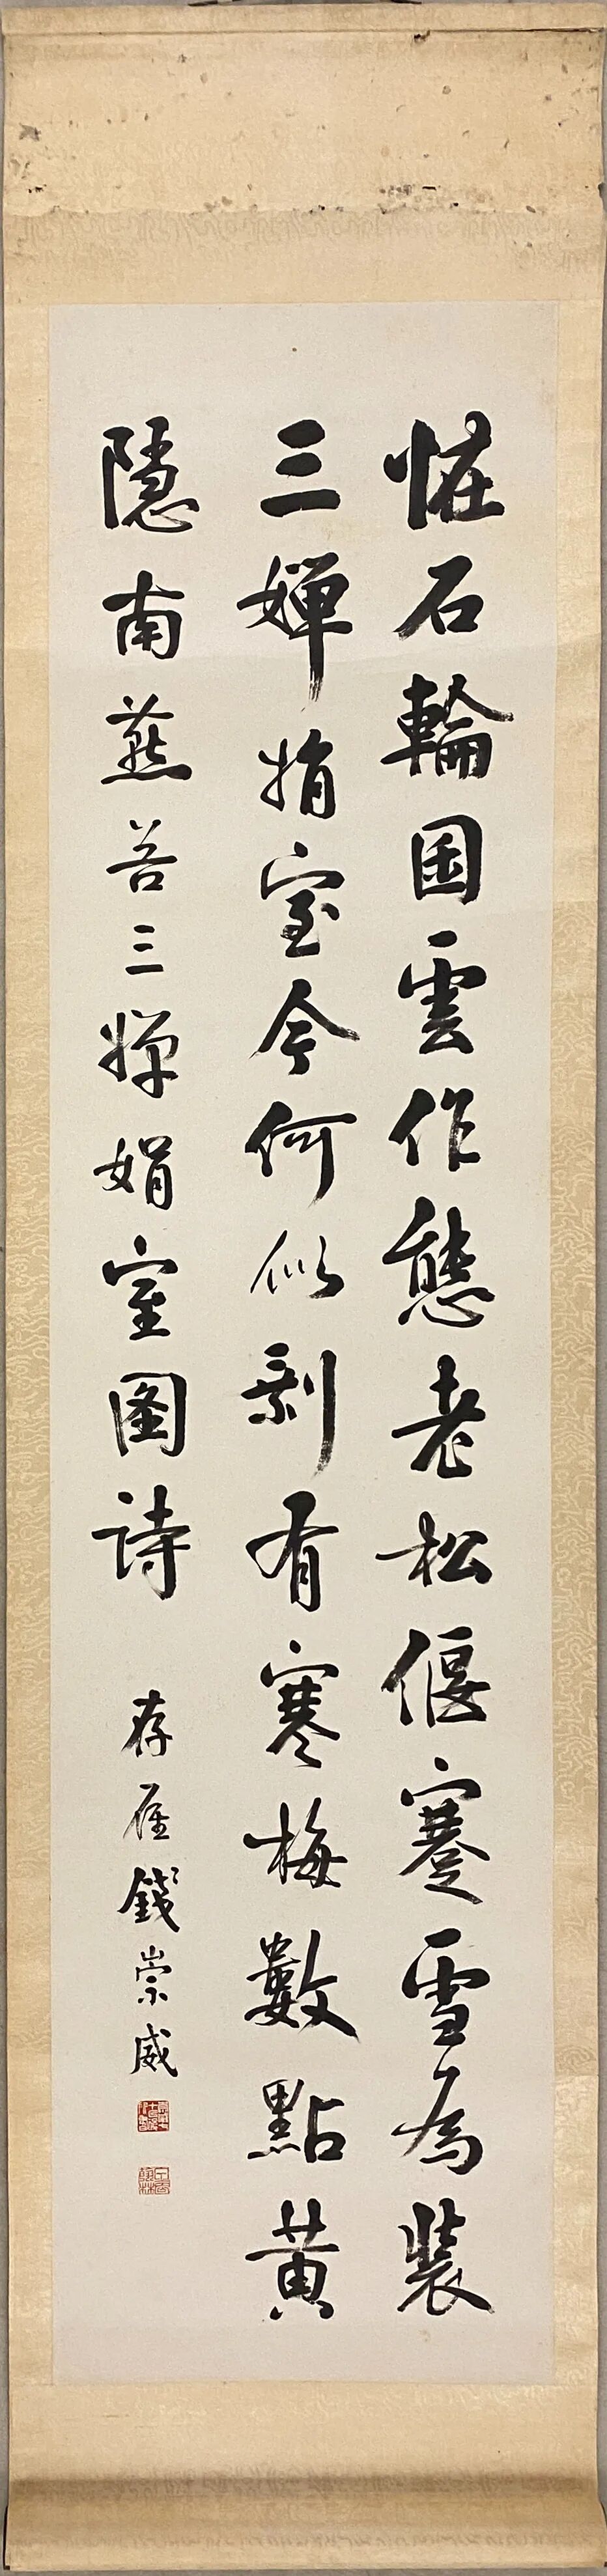 恠石輪囷雲作態老松偃蹇雪為裝
三嬋娟室今何似剩有寒梅數點黃
隱南燕荅三嬋娟室圖詩 存雁錢崇威